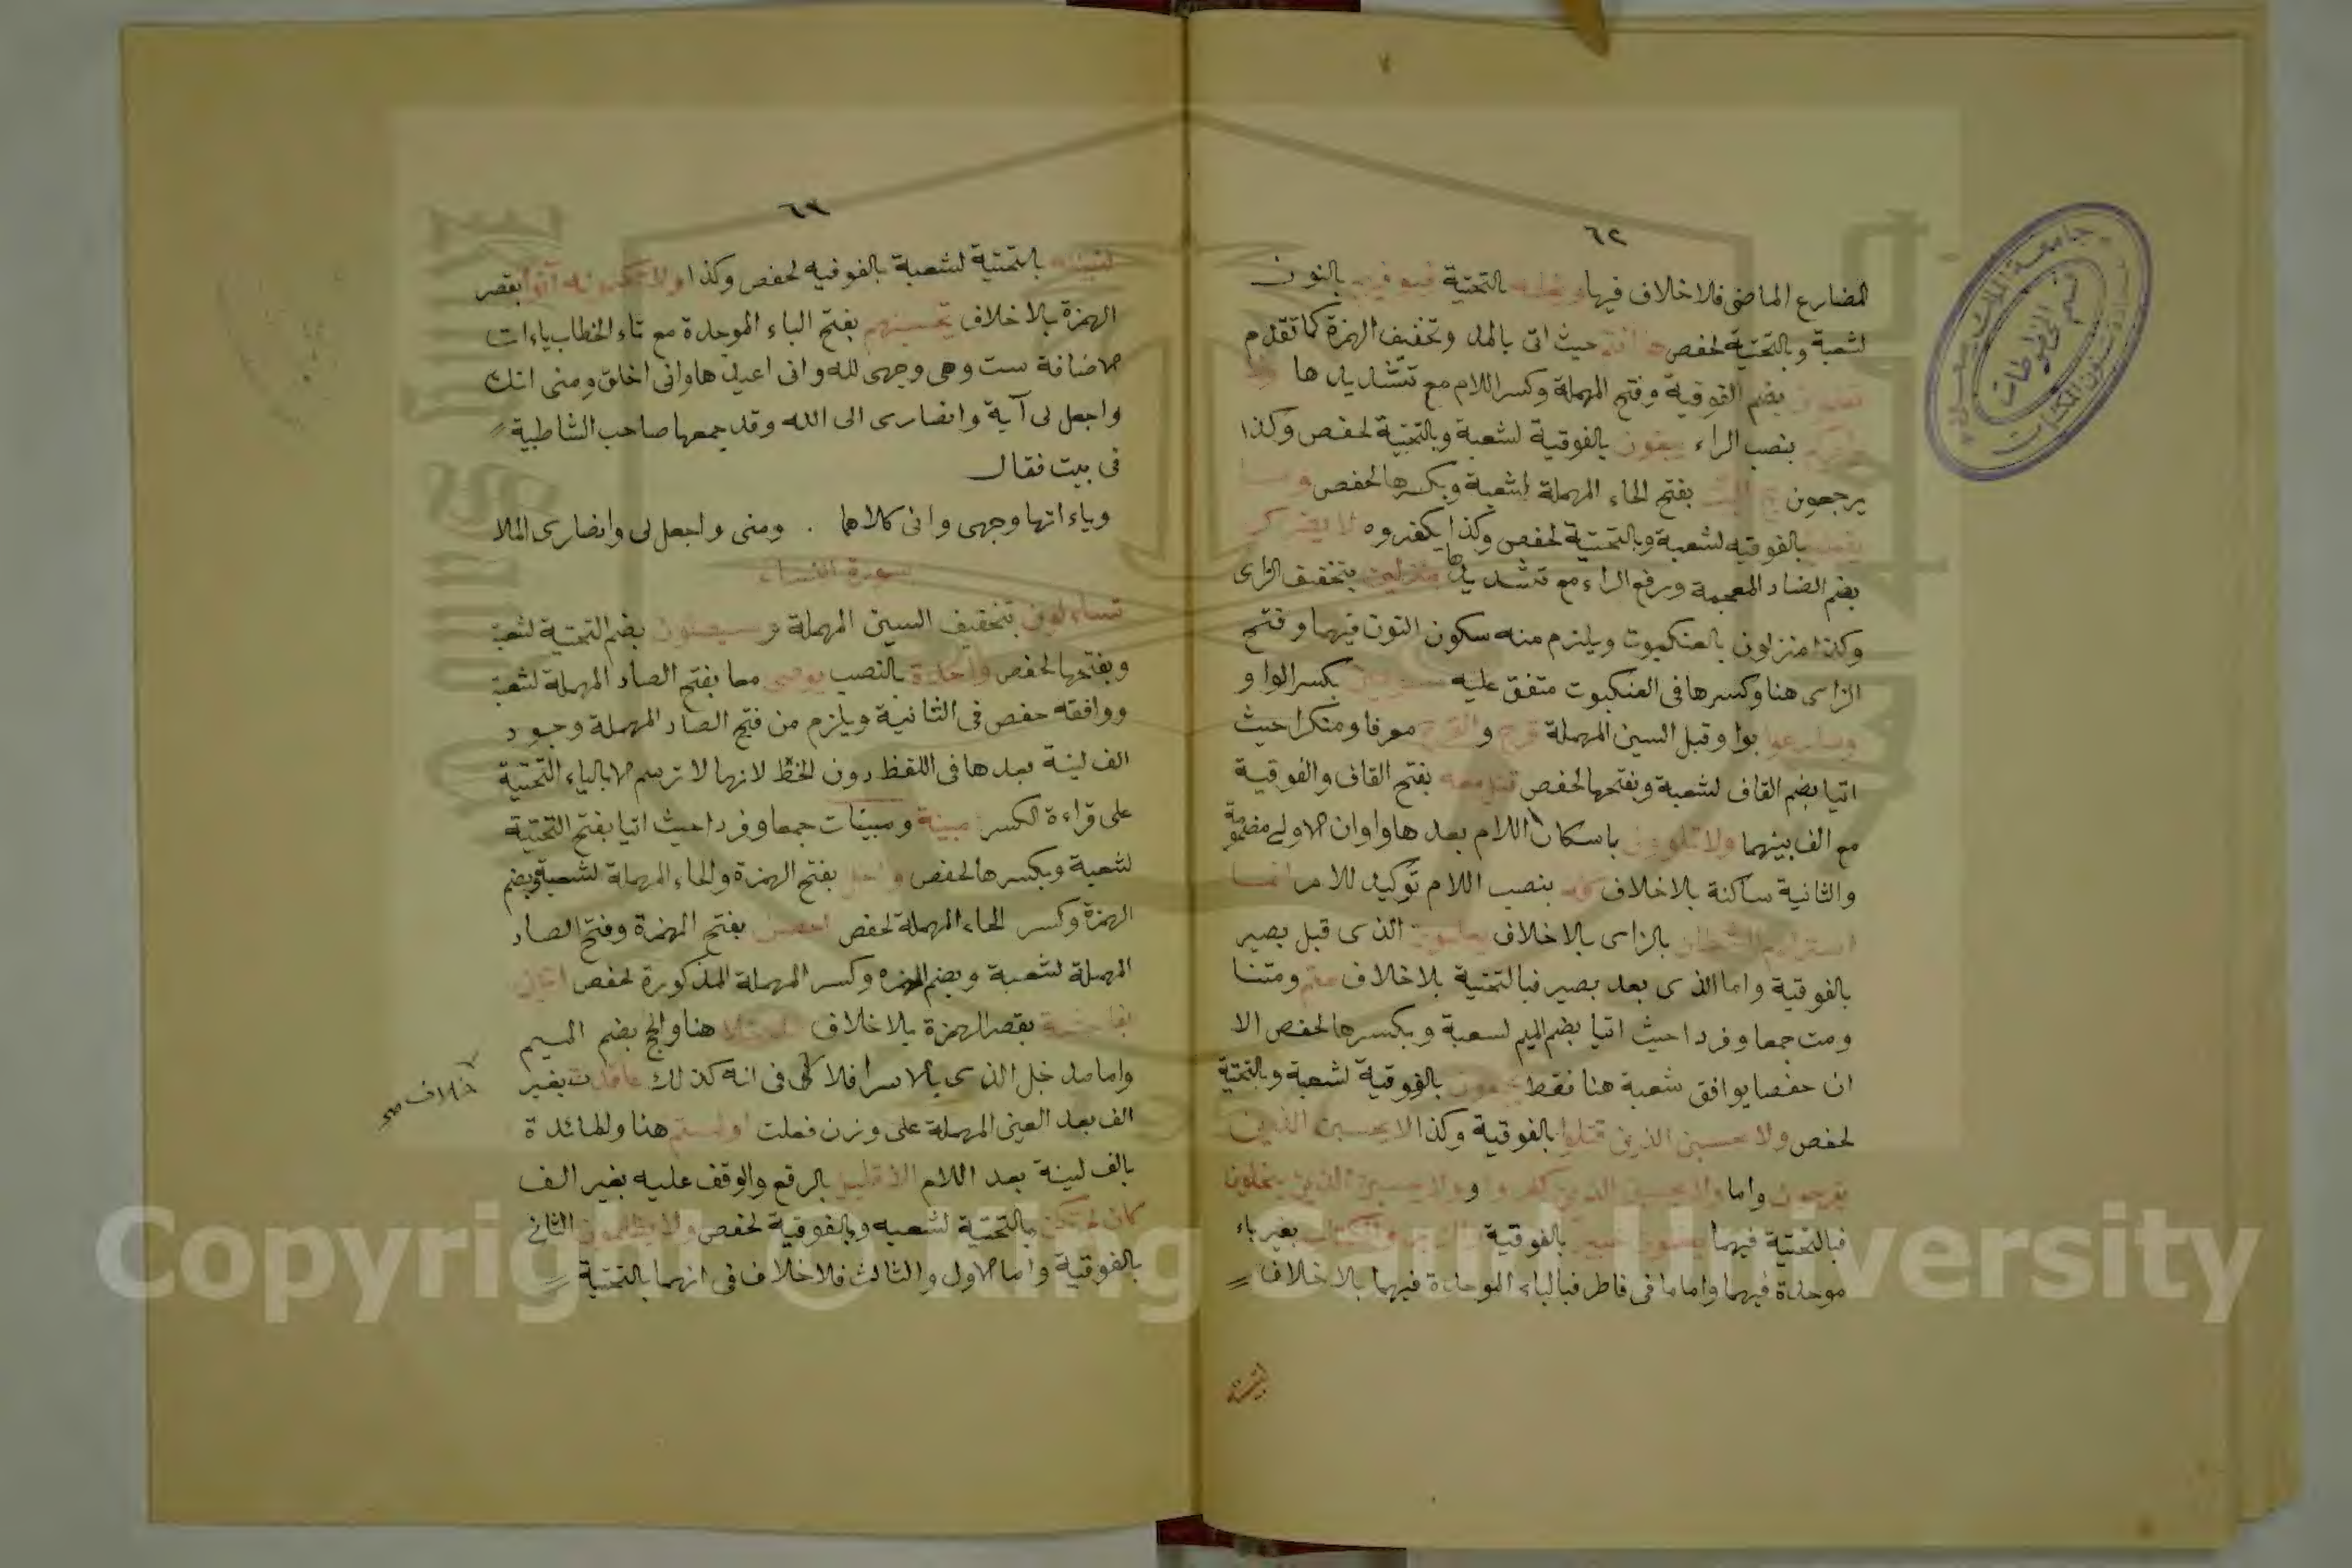 ٦٢
المضارع الماضى فلا خلاف فيها ويعلمه بالتحتية فيوفيهم بالنون
لشعبة وبالتحتية لحفص ها انتم حيث اتى بالمد وتخفيف الهمزة كما تقدم
بضم الفوقية وفتح المهملة وكسر اللام مع تشديدها
بنصب الراء يبغون بالفوقية لشعبة وبالتحتية لحفص وكذا
يرجعون حج البيت بفتح الحاء المهملة لشعبة وبكسرها لحفص وما
بالفوقيه لشعبة وبالتحتية لحفص وكذا يكفروه لا يضركم
بضم الضاد المعجمة ورفع الراء مع تشديدها منزلين بتخفيف الزاى
وكذا منزلون بالعنكبوت ويلزم منه سكون النون فيهما وفتح
الزاى هنا وكسرها فى العنكبوت متفق عليه مسومين بكسر الواو
وسارعوا بواو قبل السين المهملة قرح والقرح معرفا ومنكرا حيث
اتيا بضم القاف لشعبة وبفتحها لحفص قتل معه بفتح القاف والفوقية
مع الف بينهما ولا تلوون باسكان اللام بعدها واوان الاولى مضمومة
والثانية ساكنة بلا خلاف كله بنصب اللام توكيد للامر انما
استزلهم الشيطان بالزاى بلا خلاف يعملون الذى قبل بصير
بالفوقية واما الذى بعد بصير فبالتحتية بلا خلاف متم ومتنا
ومت جمعا وفردا حيث اتيا بضم الميم لسعبة وبكسرها لحفص الا
ان حفصا يوافق شعبة هنا فقط يجمعون بالفوقية لشعبة وبالتحتية
لحفص ولا تحسبن الذين قتلوا بالفوقية وكذا لا يحسبن الذين
يفرحون واما ولا يحسبن الذين كفروا و ولا يحسبن الذين يبخلون
فبالتحتية فيهما يعملون خبير بالفوقية والزبر والكتاب بغير باء
موحدة فيهما واما ما فى فاطر فبالباء الموحدة فيهما بلا خلاف
لتبيننه
٦٣
لتبيننه بالتحتية لشعبة بالفوقيه لحفص وكذا ولا تكتمونه آتوا بقصر
الهمزة بلا خلاف تحسبنهم بفتح الباء الموحدة مع تاء الخطاب ياءات
الاضافة ست وهى وجهى لله وانى اعيذها وانى اخلق ومنى انك
واجعل لى آية وانصارى الى الله وقد جمعها صاحب الشاطبية
فى بيت فقال
وياءاتها وجهى وانى كلاهما . ومنى واجعل لى وانصارى الملا
سورة النساء
تساءلون بتخفيف السين المهملة وسيصلون بضم التحتية لشعبة
وبفتحها لحفص واحدة بالنصب يوصى معا بفتح الصاد المهملة لشعبة
ووافقه حفص فى الثانية ويلزم من فتح الصاد المهملة وجود
الف لينة بعدها فى اللفظ دون الخط لانها لا ترسم الا بالياء التحتية
على قراءة الكسر مبينة ومبينات جمعا وفردا حيث اتيا بفتح التحتية
لشعبة وبكسرها لحفص واحل بفتح الهمزة والحاء المهملة لشعبة وبضم
الهمزة وكسر الحاء المهملة لحفص احصن بفتح الهمزة وفتح الصاد
المهملة لشعبة وبضم الهمزه وكسر المهملة المذكورة لحفص اتين
بفاحشة بقصر الهمزة بلا خلاف مدخلا هنا والحج بضم الميم
واما مدخل الذى بالاسرا فلا فى انه كذلك عاقدت بغير
خلاف صح
الف بعد العين المهملة على وزن فعلت او لمستم هنا والمائدة
بالف لينة بعد اللام الا قليل بالرفع والوقف عليه بغير الف
كان لم تكن بالتحتية لشعبه وبالفوقية لحفص ولا يظلمون الثانى
بالفوقية واما الاول والثالث فلا خلاف فى انهما بالتحتية
جامعة الملك سعود
قسم المخطوطات
Copyright © King Saud University